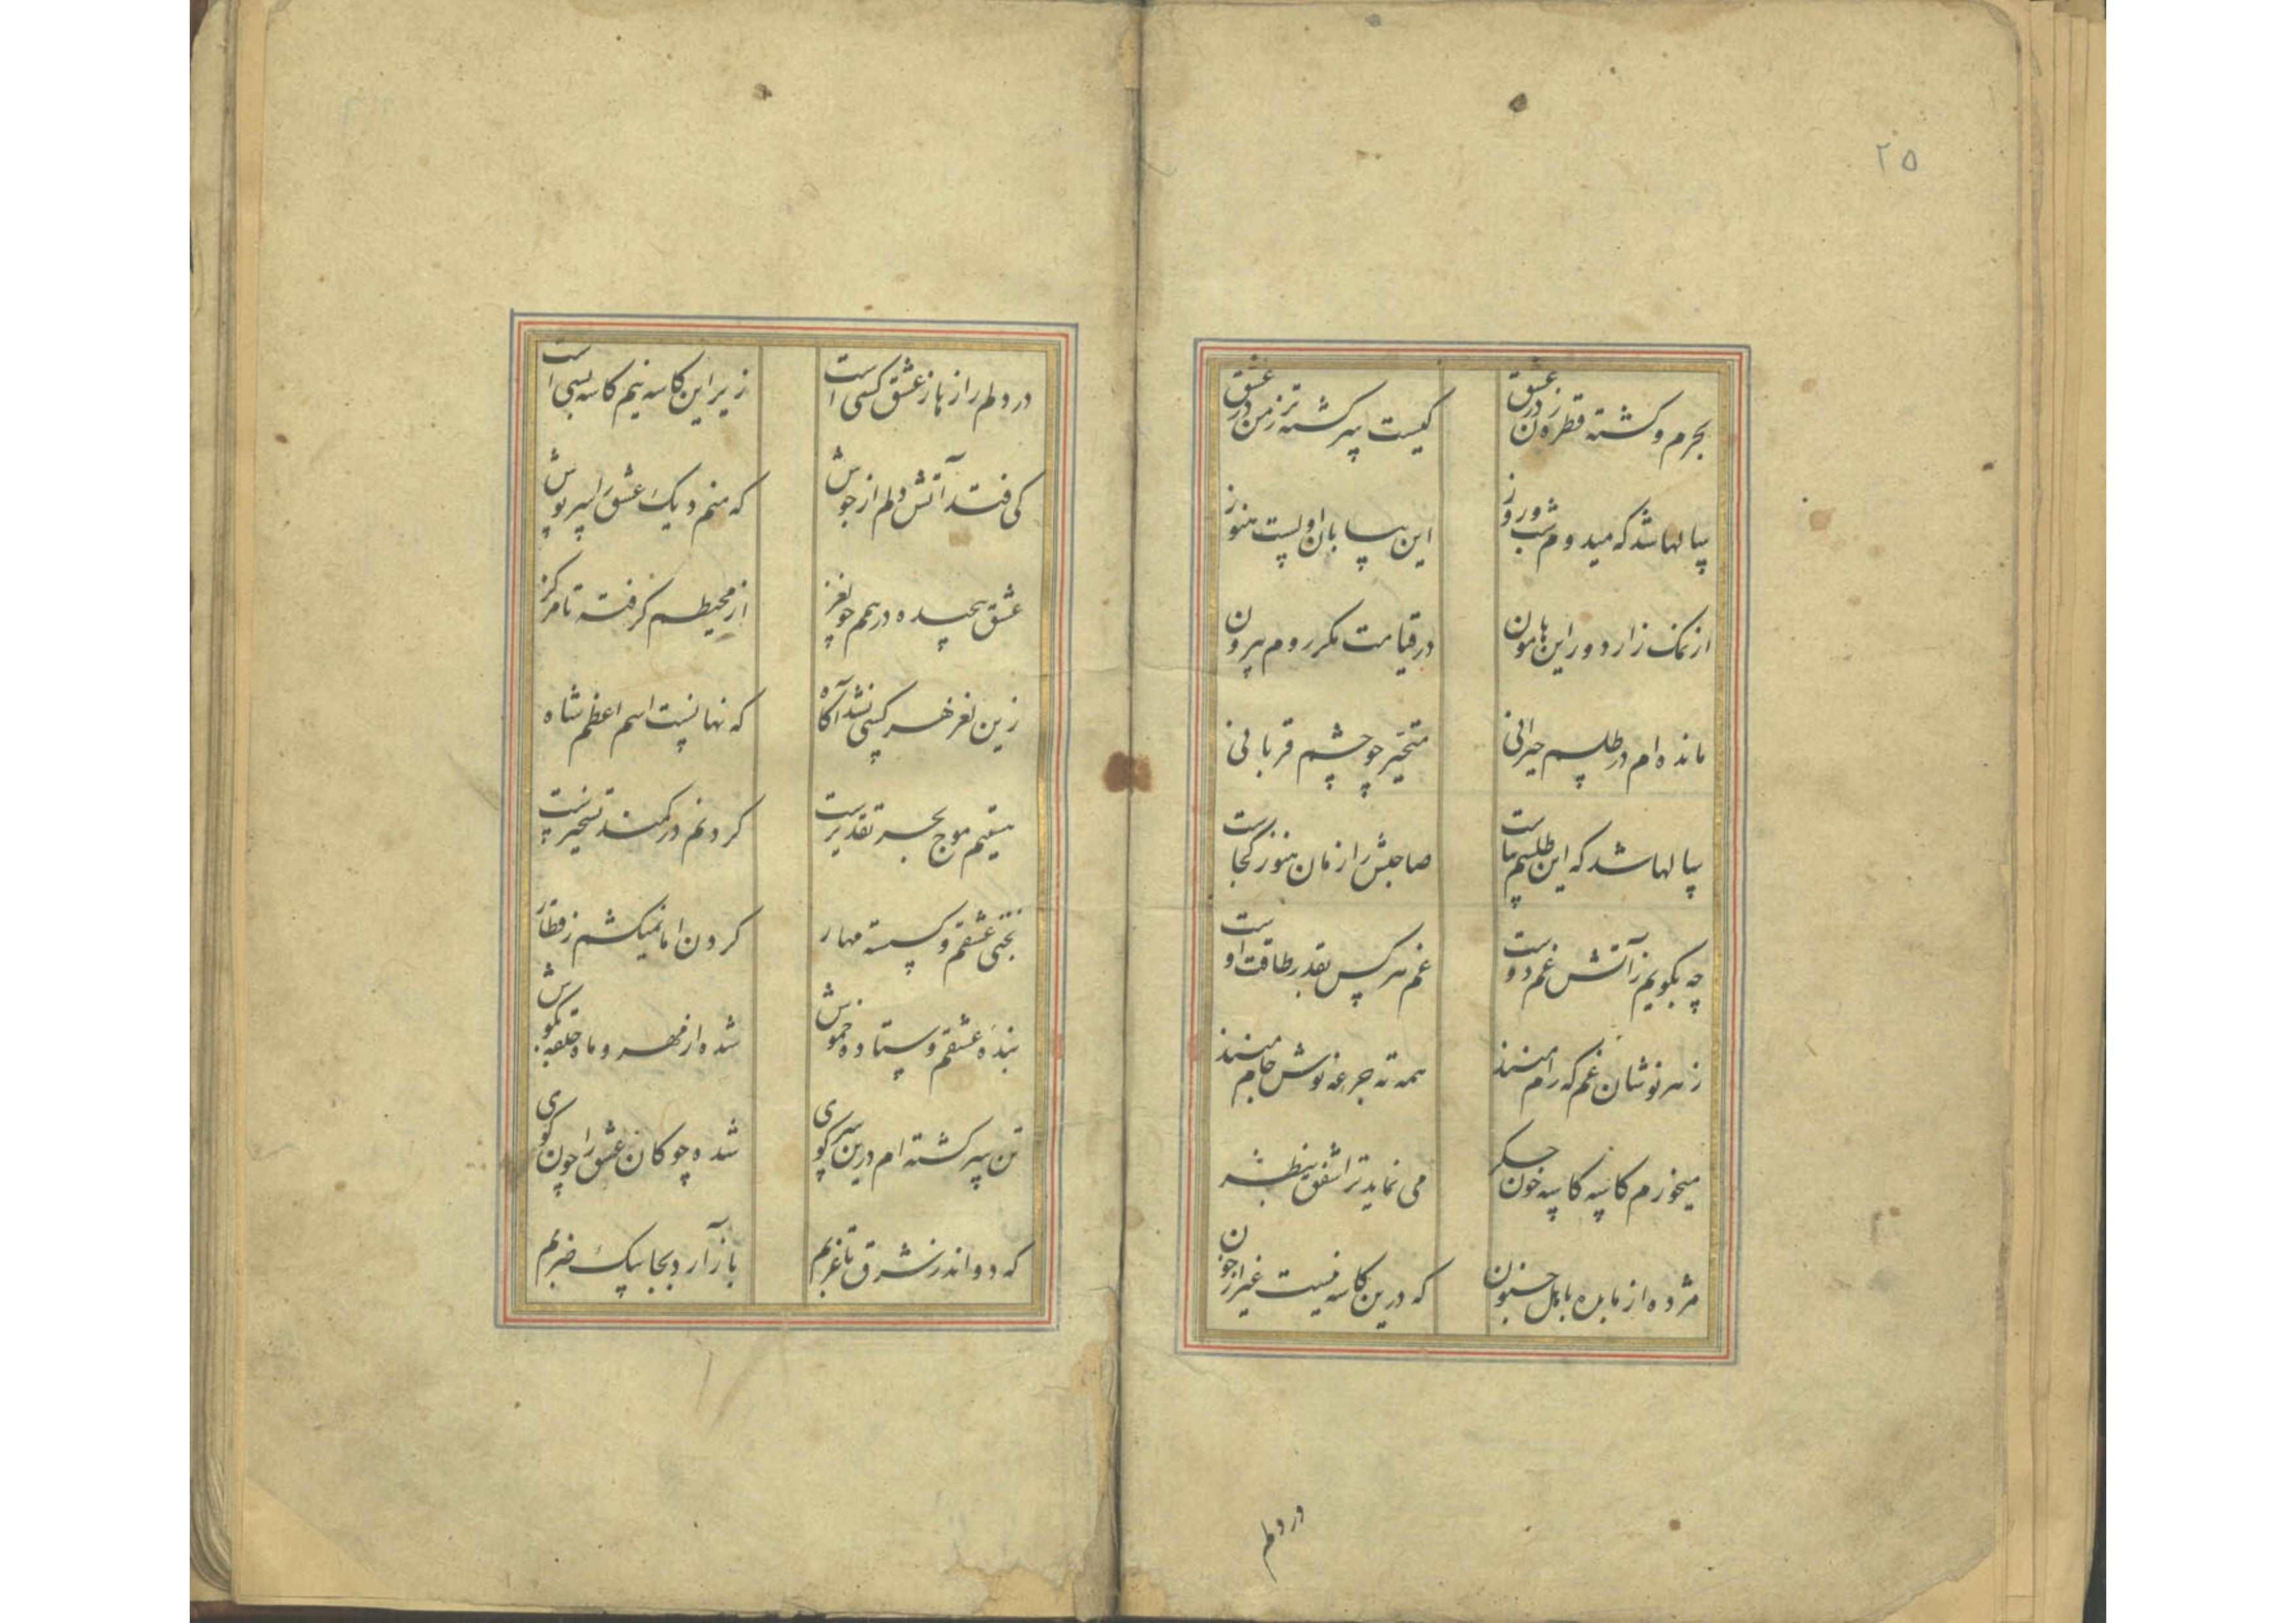 ۲۵
بحرم و کشته قطره زن در عشق
کیست سرکشته تر ز من در عشق
سالها شد که میدوم شب و روز
این بیابان اولست هنوز
از نمک زار دور این هامون
در قیامت مکر روم بیرون
مانده ام در طلسم حیرانی
متحیر چو چشم قربانی
سالها شد که این طلسم بپاست
صاحبش را زمان هنوز کجاست
چه بکویم ز آتش غم دوست
غم هر کس بقدر طاقت اوست
زهر نوشان غم که رام منند
همه ته جرعه نوش جام منند
میخورم کاسه کاسه خون جکر
می نماید ترا شفق بنظر
مژده از ما بده باهل جنون
که درین کاسه نیست غیر از خون
در دلم
در دلم رازها ز عشق کسی است
زیر این کاسه نیم کاسه بسی است
کی فتد آتش دلم از جوش
که منم دیک عشق را سرپوش
عشق پیچیده در همم چو لغز
از محیطم کرفته تا مرکز
زین لغز هر کسی نشد آکاه
که نهانست اسم اعظم شاه
هستیم موج بحر تقدیرست
کردنم در کمند تسخیرست
بختی عشقم و کسسته مهار
کردن اما نمیکشم ز قطار
بنده عشقم و ستاده خموش
شده از مهر و ماه حلقه بکوش
تن سرکشته ام درین سر کوی
شده چوکان عشق را چون کوی
که دواند ز شرق تا غربم
باز آرد بجا بیک ضربم